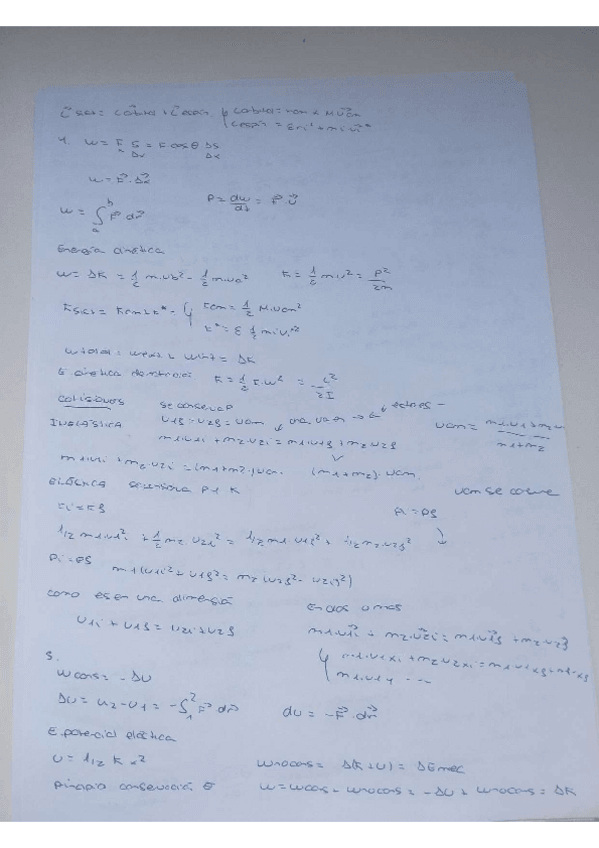 L sis = L orbital + L espín { L orbital = rcm x M vcm
L espín = Σ ri' x mi vi'
4. W = F S = F cos θ ΔS
Δx Δx
W = F · Δx
W = ∫ₐᵇ F dr
P = dW/dt = F · v
Energía cinética
W = ΔK = 1/2 m·vb² - 1/2 m·va² K = 1/2 m·v² = P²/2m
Ksis = Kcm + K* { Kcm = 1/2 M·vcm²
K* = Σ 1/2 mi·vi²
W total = Wext + Wint = ΔK
E cinética de rotación K = 1/2 I·w² = L²/2I
COLISIONES se conserva P
INELÁSTICA v1f = v2f = vcm
m1·v1i + m2·v2i = m1·v1f + m2·v2f
m1·v1i + m2·v2i = (m1+m2)·vcm (m1+m2)·vcm
ELÁSTICA se conserva P y K vcm se conserva
Ei = Ef Pi = Pf
1/2 m1·v1i² + 1/2 m2·v2i² = 1/2 m1·v1f² + 1/2 m2·v2f²
Pi = Pf m1(v1i² + v1f² = m2(v2f² - v2i²)
como es en una dimensión En dos o más
v1i + v1f = v2i + v2f m1·v1i + m2·v2i = m1·v1f + m2·v2f
{ m1·v1xi + m2·v2xi = m1·v1xf +
m1·v1y ...
5.
W cons = -ΔU
ΔU = U2 - U1 = -∫₁² F dr dU = -F · dr
E. potencial elástica
U = 1/2 K x² W nocons = Δ(K+U) = ΔEmec
Principio conservación E W = Wcons + Wnocons = -ΔU + Wnocons = ΔK